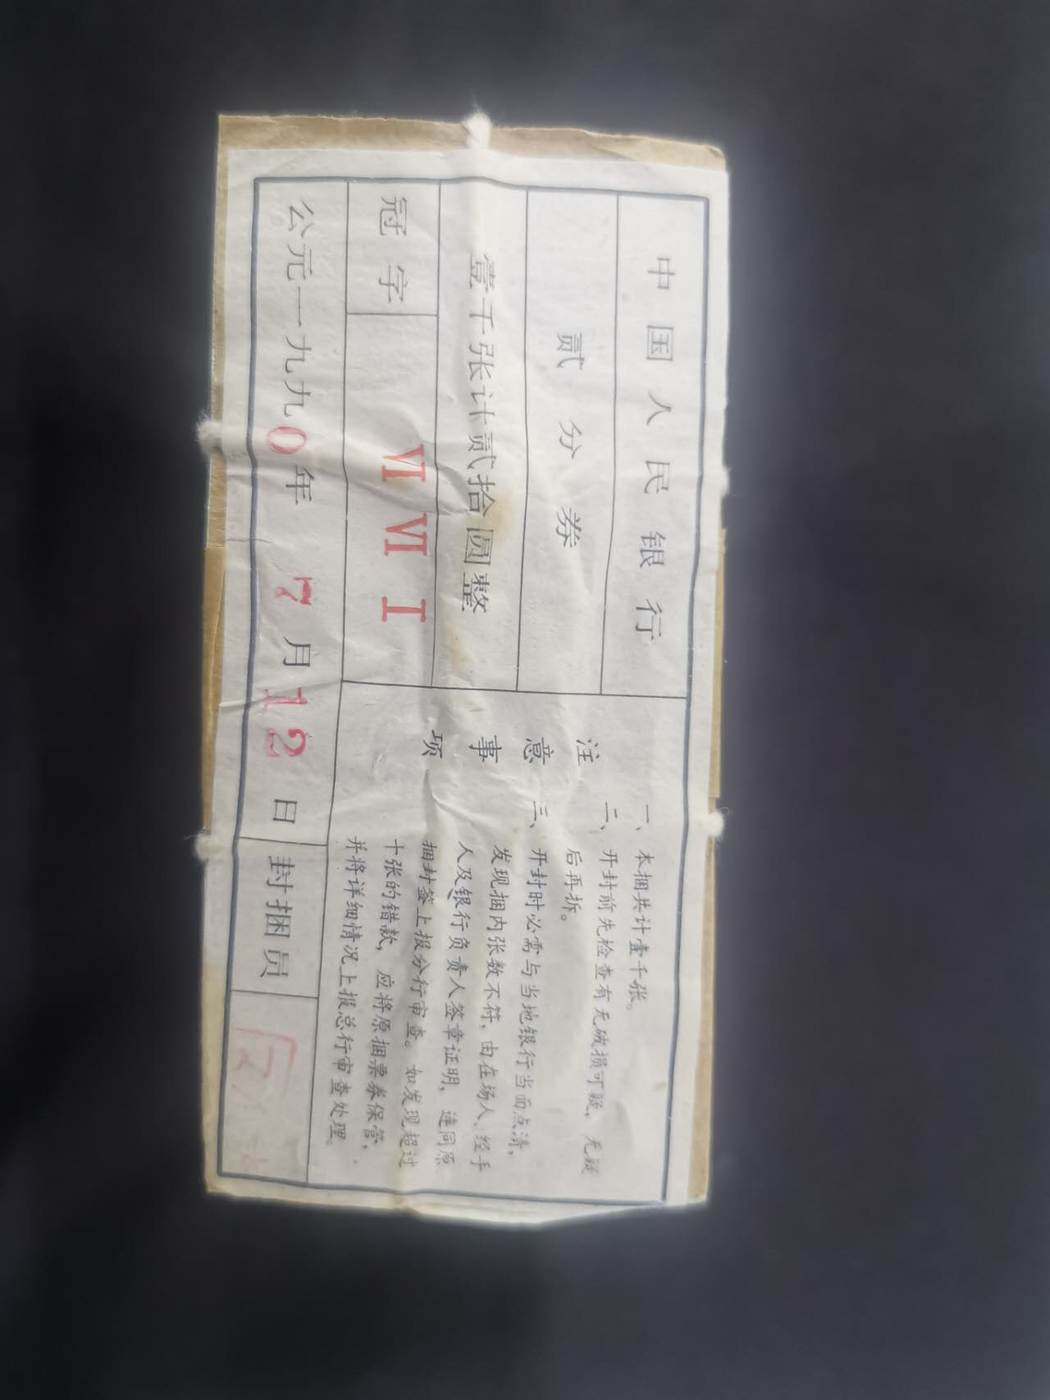 中国人民银行
贰分券
壹千张计贰拾圆整
冠字 VI VI I
公元一九九0年 7月12日 封捆员
注意事项
一、本捆共计壹千张。
二、开封前先检查有无破损可疑，无疑
后再拆。
三、开封时必需与当地银行当面点清，
发现捆内张数不符，由在场人、经手
人及银行负责人签章证明，连同原
捆封签上报分行审查。如发现超过
十张的错款，应将原捆票券保管，
并将详细情况上报总行审查处理。